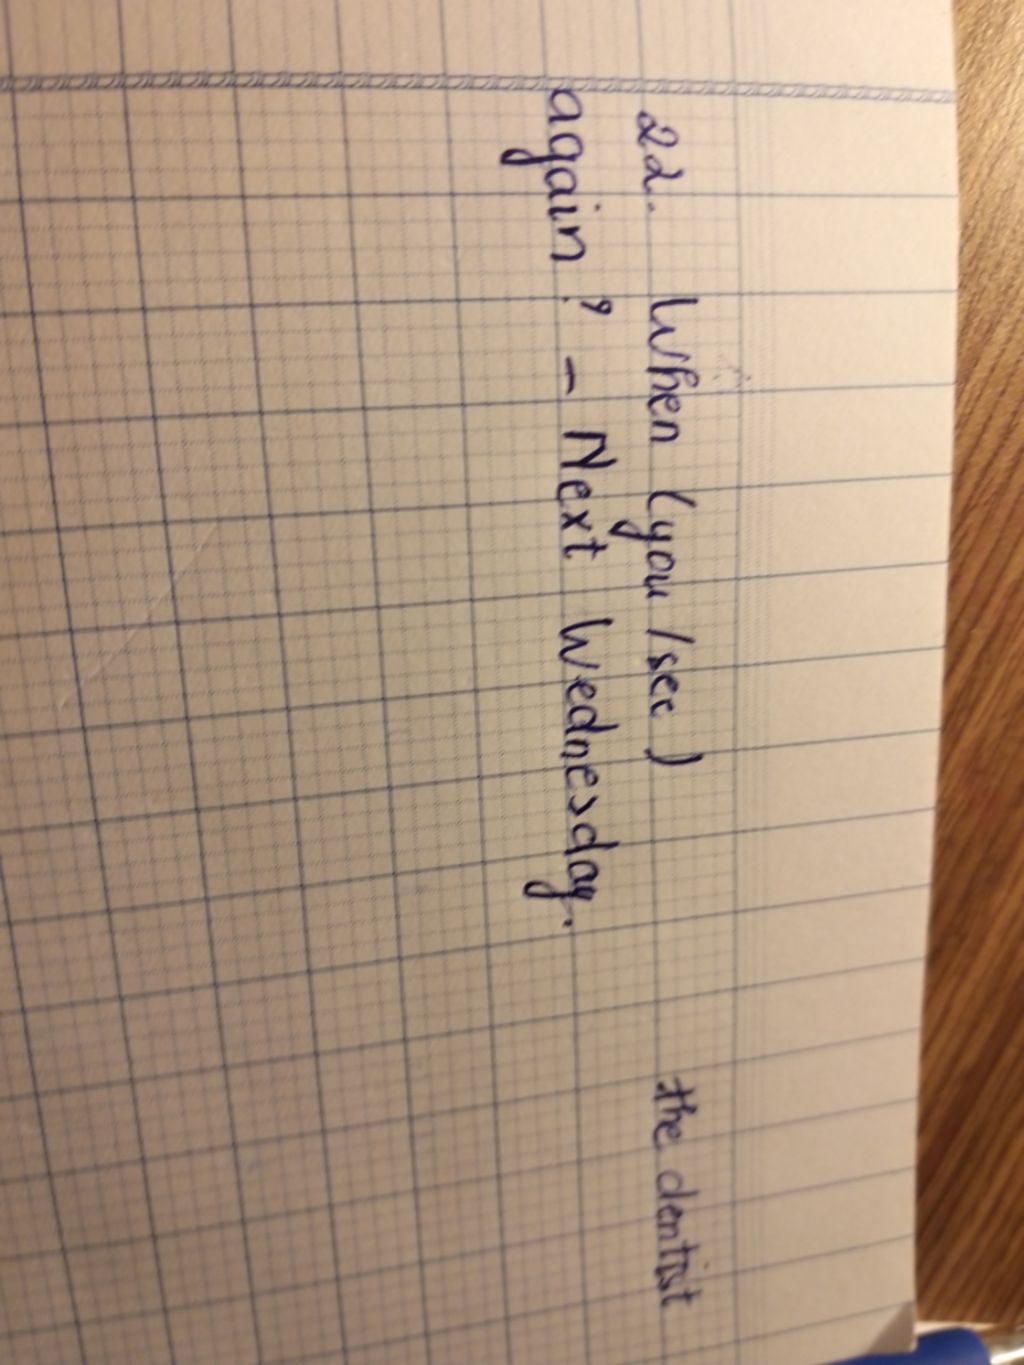 22. When (you/see) the dentist
again? - Next Wednesday.